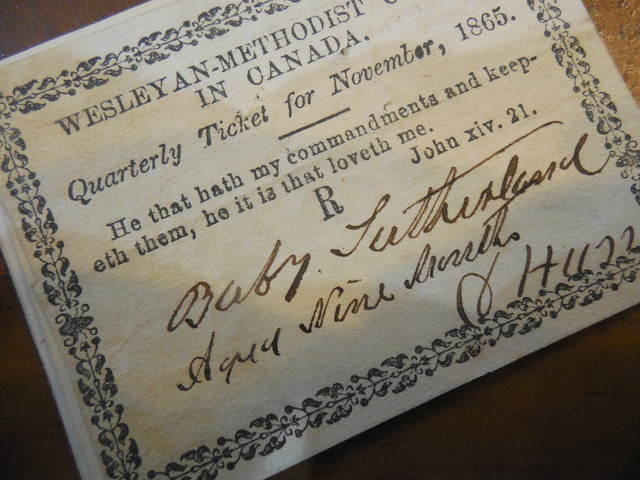 WESLEYAN-METHODIST C
IN CANADA.
Quarterly Ticket for November, 1865.
He that hath my commandments and keep-
eth them, he it is that loveth me.
John xiv. 21.
R
Baby Sutherland
Aged Nine Months